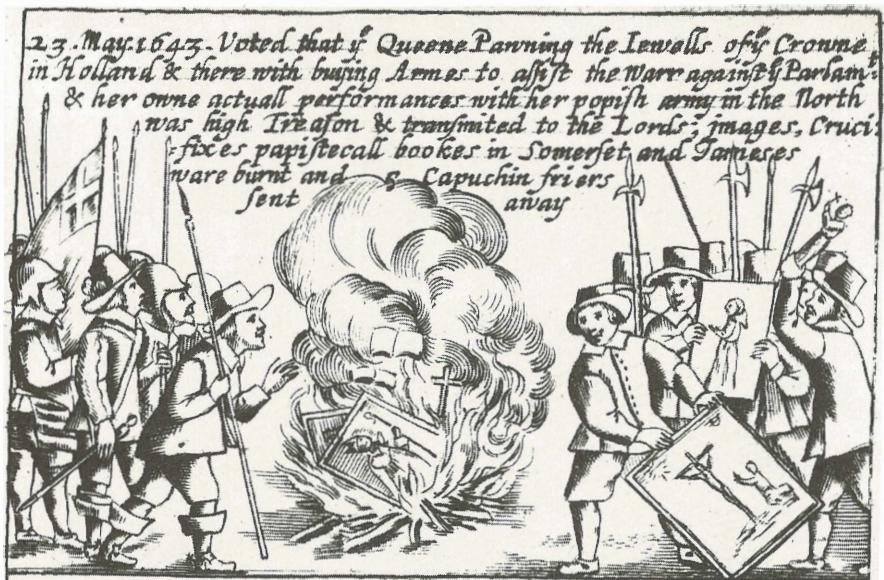 23 · May · 1643 · Voted that yᵉ Queene Pawning the Iewells of yᵉ Crowne
in Holland & there with buying Armes to assist the Warr against yᵉ Parlamᵗ:
& her owne actuall performances with her popish army in the North
was high Treason & transmited to the Lords; images, Cruci:
:fixes papistecall bookes in Somerset and Jameses
ware burnt and 5 Capuchin friers
sent away